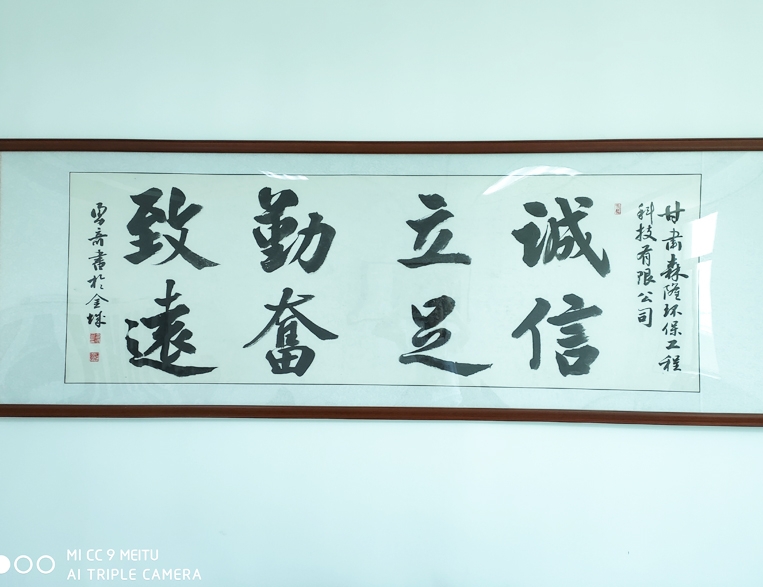 甘肃森隆环保工程
科技有限公司
诚信
立足
勤奋
致遠
雪斋書於金城
MI CC 9 MEITU
AI TRIPLE CAMERA